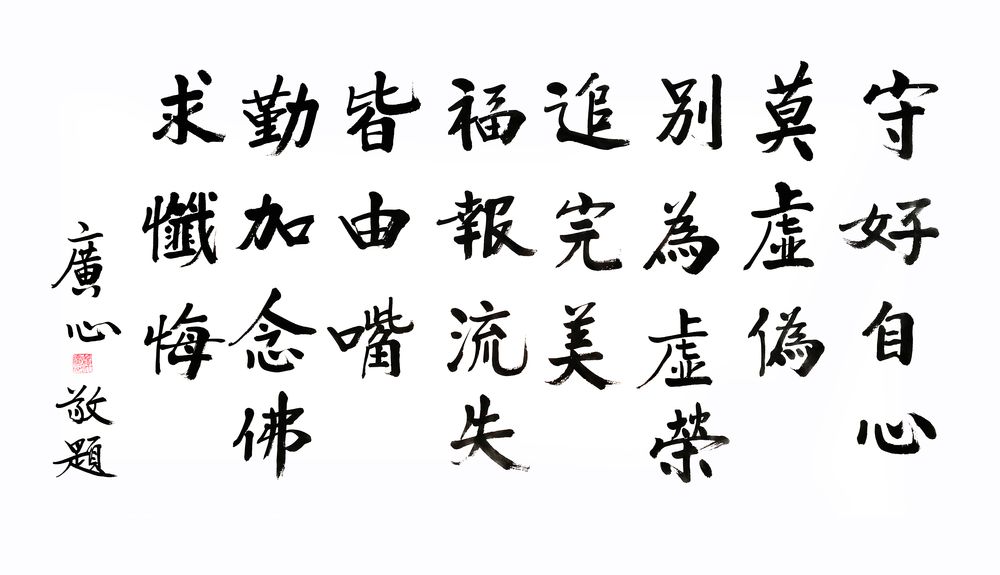 守好自心
莫虛偽
別為虛榮
追完美
福報流失
皆由嘴
勤加念佛
求懺悔
廣心敬題